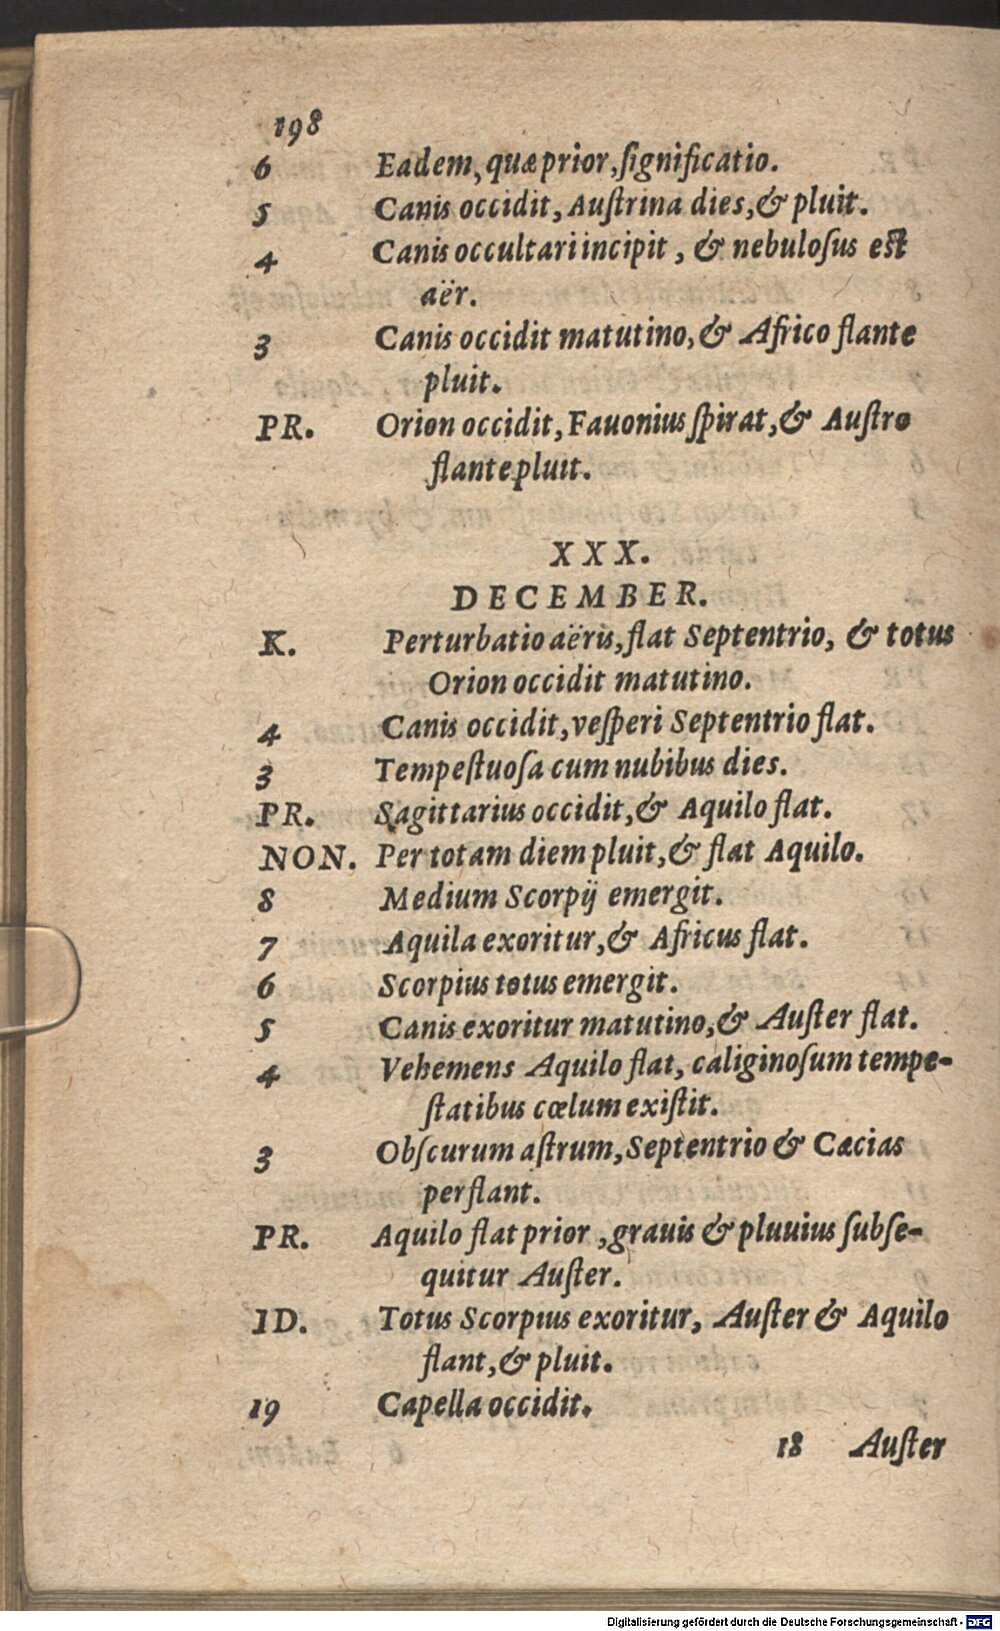 198
6 Eadem, quæ prior, ſignificatio.
5 Canis occidit, Auſtrina dies, & pluit.
4 Canis occultari incipit, & nebuloſus eſt
aër.
3 Canis occidit matutino, & Africo flante
pluit.
PR. Orion occidit, Fauonius ſpirat, & Auſtro
flante pluit.
XXX.
DECEMBER.
K. Perturbatio aëris, flat Septentrio, & totus
Orion occidit matutino.
4 Canis occidit, veſperi Septentrio flat.
3 Tempeſtuoſa cum nubibus dies.
PR. Sagittarius occidit, & Aquilo flat.
NON. Per totam diem pluit, & flat Aquilo.
8 Medium Scorpij emergit.
7 Aquila exoritur, & Africus flat.
6 Scorpius totus emergit.
5 Canis exoritur matutino, & Auſter flat.
4 Vehemens Aquilo flat, caliginoſum tempe-
ſtatibus cœlum exiſtit.
3 Obſcurum aſtrum, Septentrio & Cæcias
perflant.
PR. Aquilo flat prior, grauis & pluuius ſubſe-
quitur Auſter.
ID. Totus Scorpius exoritur, Auſter & Aquilo
flant, & pluit.
19 Capella occidit.
18 Auſter
Digitalisierung gefördert durch die Deutsche Forschungsgemeinschaft - DFG